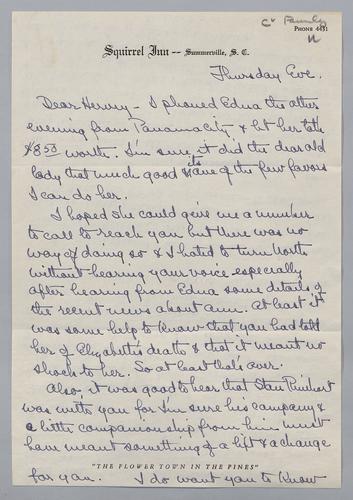 C* Family
Phone 4451
Squirrel Inn -- Summerville, S. C.
Thursday Eve.
Dear Hervey - I phoned Edna the other
evening from Panama City & let her talk
$8.50 worth. I'm sure it did the dear old
lady that much good & its one of the few favors
I can do her.
I hoped she could give me a number
to call to reach you but there was no
way of doing so & I hated to turn North
without hearing your voice especially
after hearing from Edna some details of
the recent news about Ann. At least it
was some help to know that you had told
her of Elizabeth's death & that it meant no
shock to her. So at least that's over.
Also, it was good to hear that Stan Rinehart
was with you for I'm sure his company &
a little companionship from him must
have meant something of a lift & a change
for you. I do want you to know
"THE FLOWER TOWN IN THE PINES"